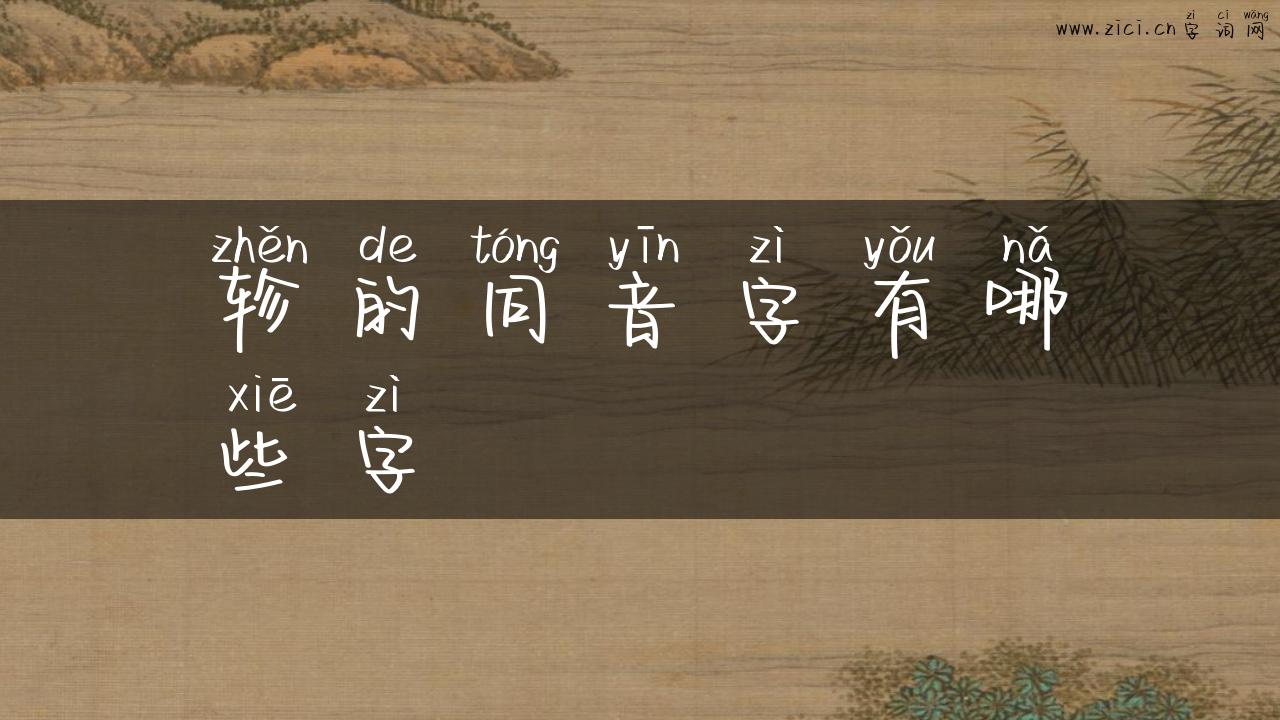 zì cí wǎng
www.zici.cn 字词网
zhěn de tóng yīn zì yǒu nǎ
轸的同音字有哪
xiē zì
些字